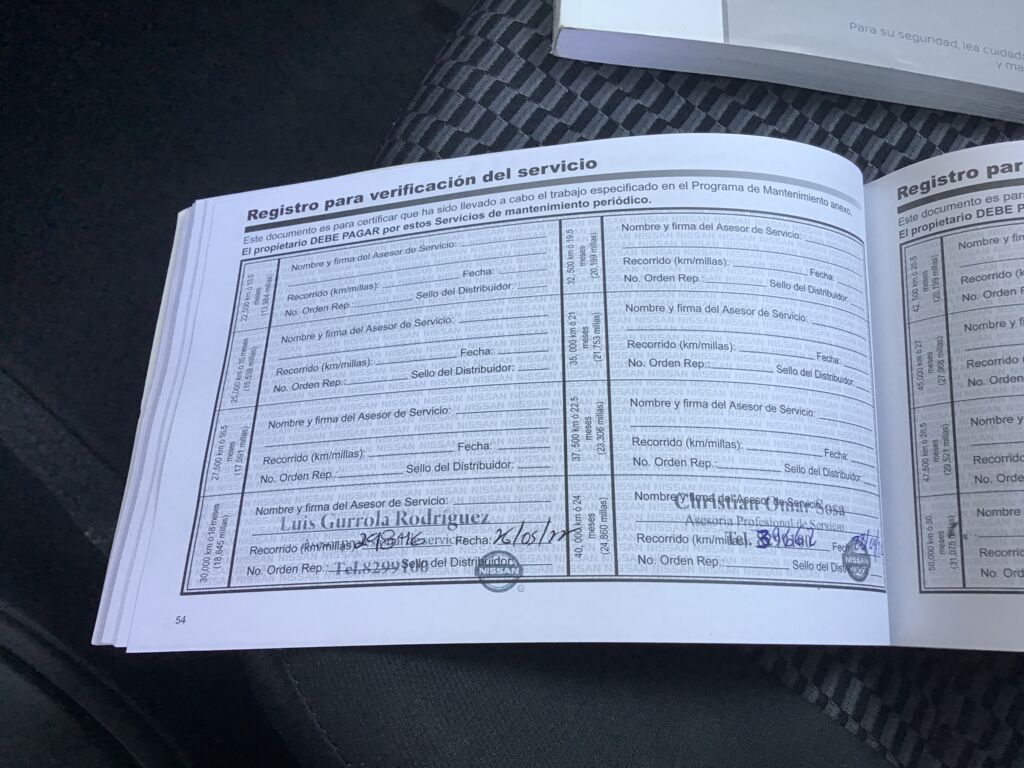 Para su seguridad, lea cuidado
y ma
Registro para verificación del servicio
Este documento es para certificar que ha sido llevado a cabo el trabajo especificado en el Programa de Mantenimiento anexo.
El propietario DEBE PAGAR por estos Servicios de mantenimiento periódico.
22,500 km ó 13.5
meses
(13,984 millas)
Nombre y firma del Asesor de Servicio:
Recorrido (km/millas): Fecha:
No. Orden Rep.: Sello del Distribuidor:
25,000 km ó 15 meses
(15,538 millas)
Nombre y firma del Asesor de Servicio:
Recorrido (km/millas): Fecha:
No. Orden Rep.: Sello del Distribuidor:
27,500 km ó 16.5
meses
(17,091 millas)
Nombre y firma del Asesor de Servicio:
Recorrido (km/millas): Fecha:
No. Orden Rep.: Sello del Distribuidor:
30,000 km ó 18 meses
(18,645 millas)
Nombre y firma del Asesor de Servicio:
Luis Gurrola Rodríguez
Recorrido (km/millas) Fecha: 26/05/22
No. Orden Rep.: Tel.8299100 Sello del Distribuidor:
NISSAN
32,500 km ó 19.5
meses
(20,199 millas)
Nombre y firma del Asesor de Servicio:
Recorrido (km/millas): Fecha:
No. Orden Rep.: Sello del Distribuidor:
35,000 km ó 21
meses
(21,753 millas)
Nombre y firma del Asesor de Servicio:
Recorrido (km/millas): Fecha:
No. Orden Rep.: Sello del Distribuidor:
37,500 km ó 22.5
meses
(23,306 millas)
Nombre y firma del Asesor de Servicio:
Recorrido (km/millas): Fecha:
No. Orden Rep.: Sello del Distribuidor:
40,000 km ó 24
meses
(24,860 millas)
Nombre y firma del Asesor de Servicio:
Christian Omar Sosa
Asesoria Profesional de Servicio
Recorrido (km/millas) Tel.
No. Orden Rep.: Sello del
NISSAN
54
Registro par
Este documento es para
El propietario DEBE P
42,500 km ó 25.5
meses
Nombre y firm
Recorrido (k
No. Orden R
45,000 km ó 27
meses
(27,968 millas)
Nombre y f
Recorrido
No. Orden
47,500 km ó 28.5
meses
(29,521 millas)
Nombre y
Recorrid
No. Ord
50,000 km ó 30
meses
(31,075 millas)
Nombre
Recorri
No. O